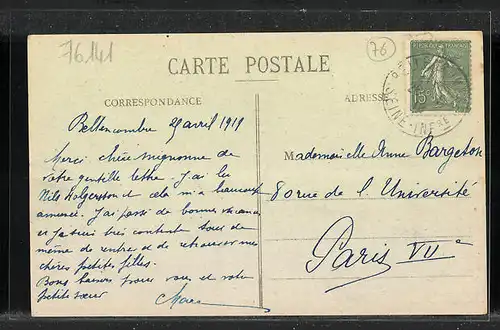 76.141
76
CARTE POSTALE
REPUBLIQUE FRANÇAISE
15
SEINE-INFRE
CORRESPONDANCE
ADRESSE
Bellencombre 29 avril 1919
Merci chère mignonne de
votre gentille lettre. J'ai lu
Nils Holgersson et cela m'a beaucoup
amusé. J'ai passé de bonnes vacances
et je suis très contente tous de
même de rentrer et de retrouver mes
chères petites filles.
Bons baisers pour vous et votre
petite sœur
Mademoiselle Anne Bargeton
8 rue de l'Université
Paris VIIe